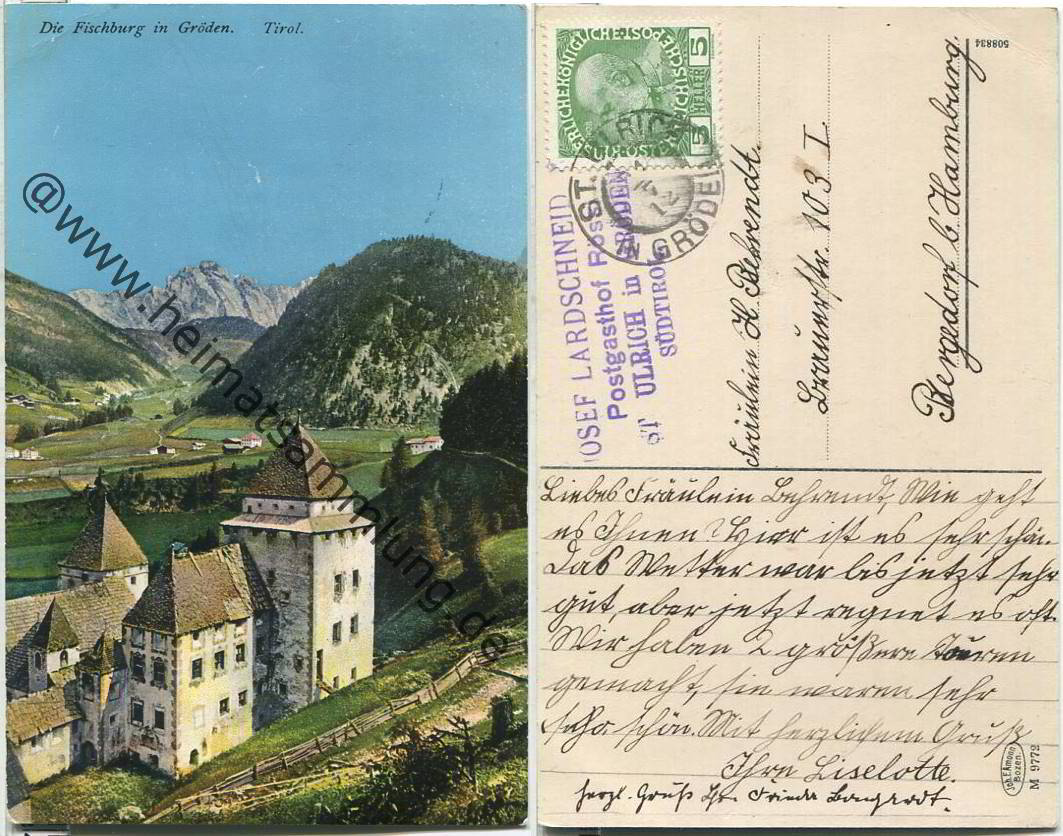 Die Fischburg in Gröden. Tirol.
@www.heimatsammlung.de
5 HELLER 5
JOSEF LARDSCHNEID
Postgasthof RÖSSL
ST ULRICH in GRÖDEN
SÜDTIROL
Fräulein H. Behrendt.
Braunerstr. 103 I.
Bergedorf b Hamburg.
508834
Liebes Fräulein Behrendt, Wie geht
es Ihnen? Hier ist es sehr schön.
Das Wetter war bis jetzt sehr
gut, aber jetzt regnet es oft.
Wir haben 2 größere Touren
gemacht, sie waren sehr
sehr schön. Mit herzlichem Gruß
Ihre Liselotte.
herzl. Gruß Ihr. Frieda
Joh. F. Amonn Bozen.
M 9772